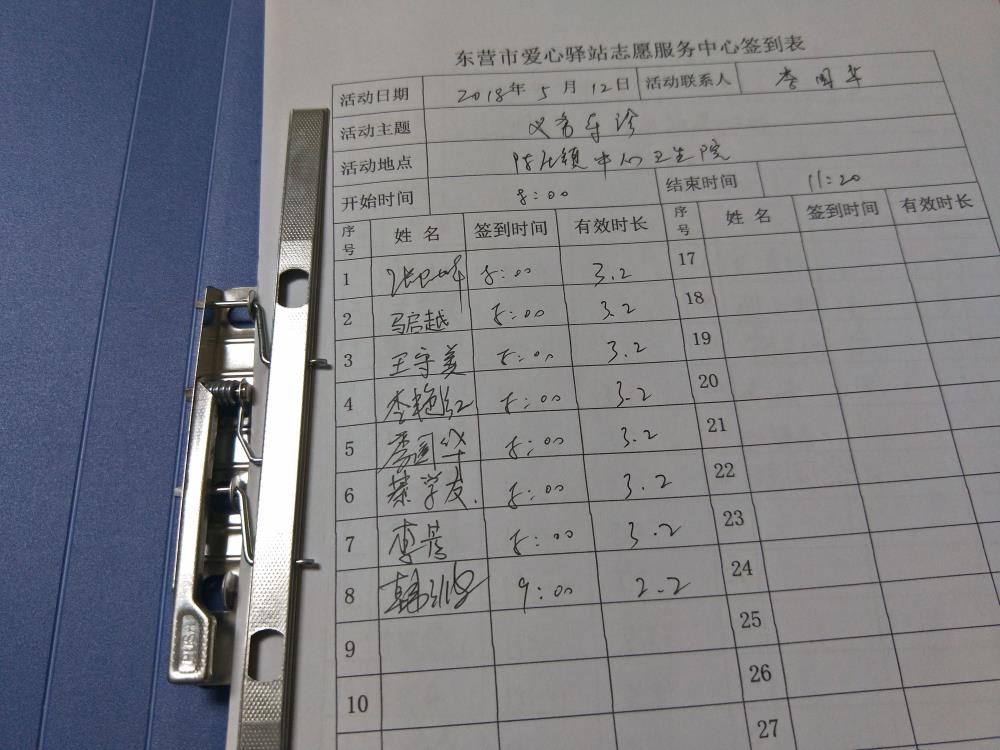 东营市爱心驿站志愿服务中心签到表
活动日期 2018年5月12日 活动联系人 李国华
活动主题 义务车诊
活动地点 陈庄镇中心卫生院
开始时间 8:00 结束时间 11:20
序号 姓名 签到时间 有效时长 序号 姓名 签到时间 有效时长
1 8:00 3.2 17
2 马启越 8:00 3.2 18
3 王守美 8:00 3.2 19
4 李艳红 8:00 3.2 20
5 李国华 8:00 3.2 21
6 蔡学友. 8:00 3.2 22
7 8:00 3.2 23
8 9:00 2.2 24
9 25
10 26
27
PUSH